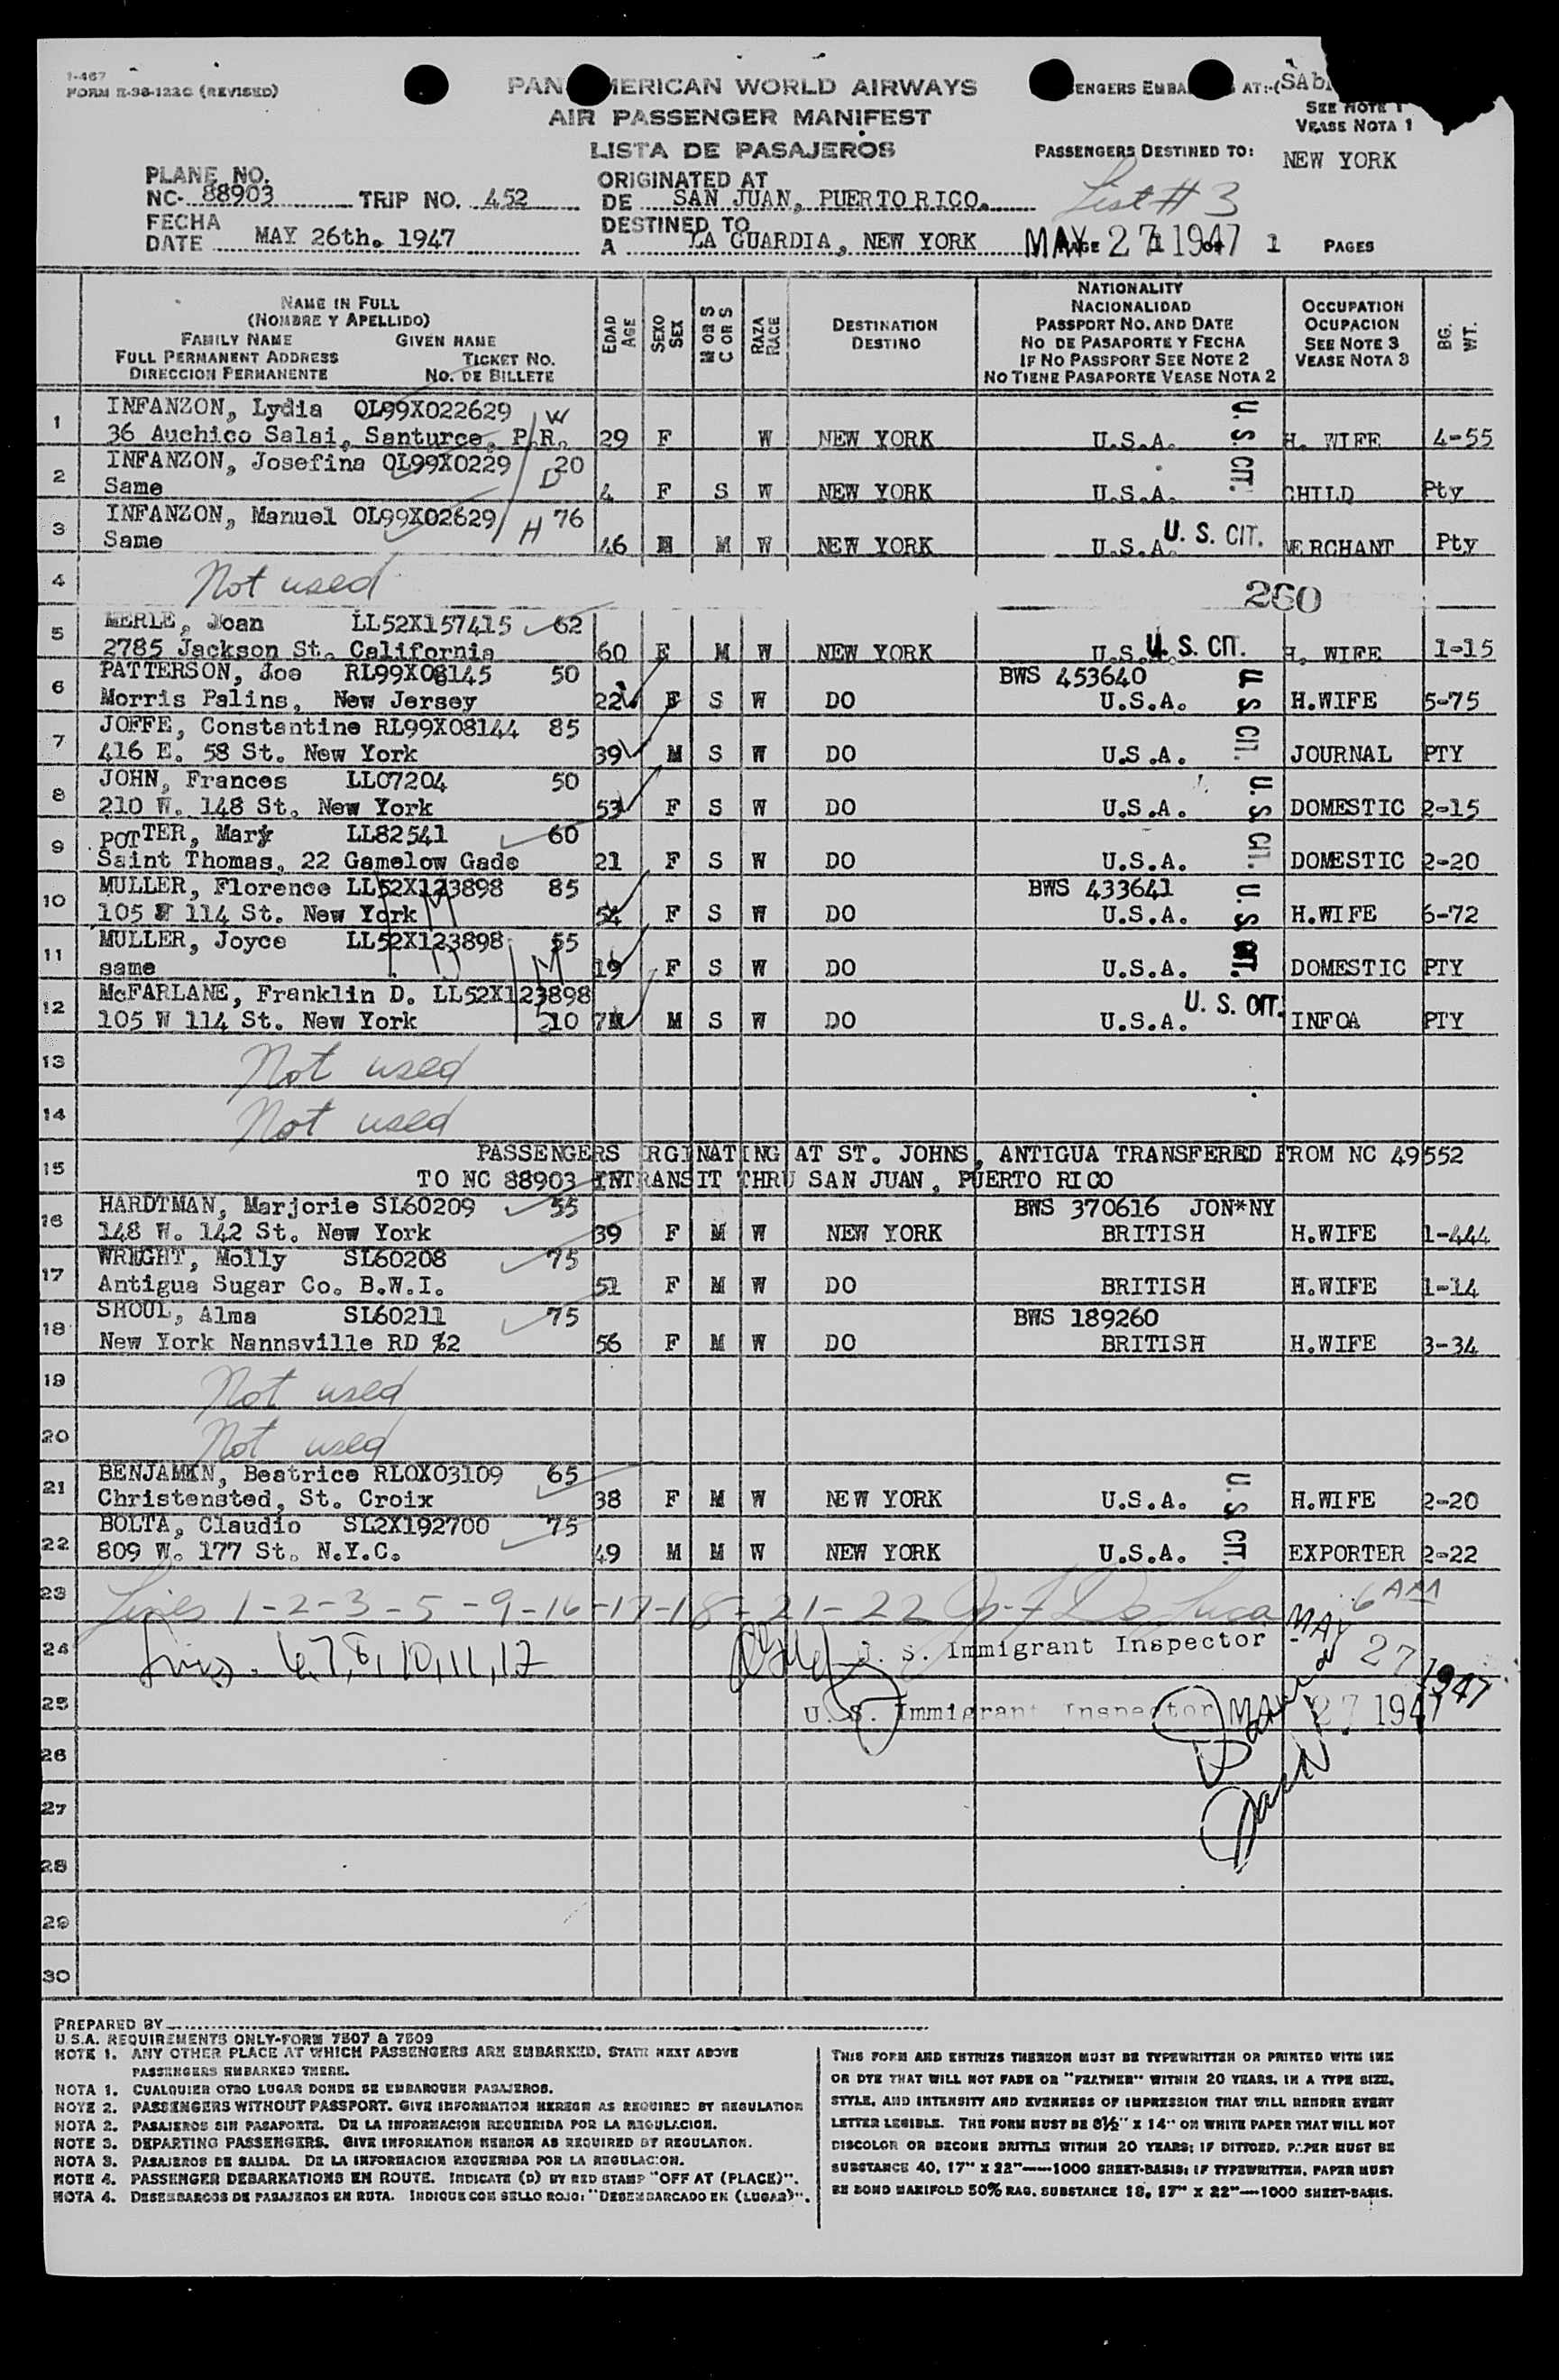 I-467
FORM E-38-122G (REVISED)
AMERICAN WORLD AIRWAYS
AIR PASSENGER MANIFEST
LISTA DE PASAJEROS
AT:-(
SEE NOTE 1
VEASE NOTA 1
PASSENGERS DESTINED TO: NEW YORK
PLANE NO.
NC- 88903 TRIP NO. 452
ORIGINATED AT
DE SAN JUAN, PUERTO RICO.
List # 3
FECHA
DATE MAY 26th. 1947
DESTINED TO
A LA GUARDIA, NEW YORK
MAY 27 1947 1 PAGES
NAME IN FULL
(NOMBRE Y APELLIDO)
FAMILY NAME GIVEN NAME
FULL PERMANENT ADDRESS TICKET NO.
DIRECCION PERMANENTE NO. DE BILLETE
EDAD AGE
SEXO SEX
M OR S
C OR S
RAZA RACE
DESTINATION
DESTINO
NATIONALITY
NACIONALIDAD
PASSPORT NO. AND DATE
NO DE PASAPORTE Y FECHA
IF NO PASSPORT SEE NOTE 2
NO TIENE PASAPORTE VEASE NOTA 2
OCCUPATION
OCUPACION
SEE NOTE 3
VEASE NOTA 3
BG. WT.
1 INFANZON, Lydia OL99X022629 W
36 Auchico Salai, Santurce, P.R. 29 F W NEW YORK U.S.A. U.S. CIT. H. WIFE 4-55
2 INFANZON, Josefina OL99X0229 20 D
Same 4 F S W NEW YORK U.S.A. CHILD Pty
3 INFANZON, Manuel OL99X02629 H 76
Same 46 M M W NEW YORK U.S.A. U. S. CIT. MERCHANT Pty
4 Not used 260
5 MERLE, Joan LL52X157415 62
2785 Jackson St. California 60 F M W NEW YORK U.S. U. S. CIT. H. WIFE 1-15
6 PATTERSON, Joe RL99X08145 50 BWS 453640
Morris Palins, New Jersey 22 F S W DO U.S.A. U S CIT. H.WIFE 5-75
7 JOFFE, Constantine RL99X08144 85
416 E. 58 St. New York 39 M S W DO U.S.A. JOURNAL PTY
8 JOHN, Frances LL07204 50
210 W. 148 St. New York 53 F S W DO U.S.A. U. S CIT. DOMESTIC 2-15
9 POTTER, Mary LL82541 60
Saint Thomas, 22 Gamelow Gade 21 F S W DO U.S.A. DOMESTIC 2-20
10 MULLER, Florence LL52X123898 85 BWS 433641
105 W 114 St. New York M 54 F S W DO U.S.A. U. S CIT. H.WIFE 6-72
11 MULLER, Joyce LL52X123898 55
same D M 19 F S W DO U.S.A. DOMESTIC PTY
12 McFARLANE, Franklin D. LL52X123898
105 W 114 St. New York 10 7M M S W DO U.S.A. U. S. CIT. INFOA PTY
13 Not used
14 Not used
15 PASSENGERS ORGINATING AT ST. JOHNS, ANTIGUA TRANSFERED FROM NC 49552
TO NC 88903 INTRANSIT THRU SAN JUAN, PUERTO RICO
16 HARDTMAN, Marjorie SL60209 55 BWS 370616 JON*NY
148 W. 142 St. New York 39 F M W NEW YORK BRITISH H.WIFE 1-444
17 WRIGHT, Molly SL60208 75
Antigua Sugar Co. B.W.I. 51 F M W DO BRITISH H.WIFE 1-14
18 SHOUL, Alma SL60211 75 BWS 189260
New York Nannsville RD %2 56 F M W DO BRITISH H.WIFE 3-34
19 Not used
20 Not used
21 BENJAMIN, Beatrice RLOX03109 65
Christensted, St. Croix 38 F M W NEW YORK U.S.A. U. S CIT. H.WIFE 2-20
22 BOLTA, Claudio SL2X192700 75
809 W. 177 St. N.Y.C. 49 M M W NEW YORK U.S.A. EXPORTER 2-22
23 Lines 1-2-3-5-9-16-17-18-21-22 6 AM
24 Lines. 6,7,8,10,11,12 U. S. Immigrant Inspector MAY 27 1947
25 U. S. Immigrant Inspector MAY 27 1947
26
27
28
29
30
PREPARED BY
U.S.A. REQUIREMENTS ONLY-FORM 7507 & 7509
NOTE 1. ANY OTHER PLACE AT WHICH PASSENGERS ARE EMBARKED, STATE NEXT ABOVE
PASSENGERS EMBARKED THERE.
NOTA 1. CUALQUIER OTRO LUGAR DONDE SE EMBARQUEN PASAJEROS.
NOTE 2. PASSENGERS WITHOUT PASSPORT. GIVE INFORMATION HEREON AS REQUIRED BY REGULATION
NOTA 2. PASAJEROS SIN PASAPORTE. DE LA INFORMACION REQUERIDA POR LA REGULACION.
NOTE 3. DEPARTING PASSENGERS. GIVE INFORMATION HEREON AS REQUIRED BY REGULATION.
NOTA 3. PASAJEROS DE SALIDA. DE LA INFORMACION REQUERIDA POR LA REGULACION.
NOTE 4. PASSENGER DEBARKATIONS EN ROUTE. INDICATE (D) BY RED STAMP "OFF AT (PLACE)".
NOTA 4. DESEMBARCOS DE PASAJEROS EN RUTA. INDIQUE CON SELLO ROJO: "DESEMBARCADO EN (LUGAR)".
THIS FORM AND ENTRIES THEREON MUST BE TYPEWRITTEN OR PRINTED WITH INK
OR DYE THAT WILL NOT FADE OR "FEATHER" WITHIN 20 YEARS, IN A TYPE SIZE,
STYLE, AND INTENSITY AND EVENNESS OF IMPRESSION THAT WILL RENDER EVERY
LETTER LEGIBLE. THE FORM MUST BE 8½" X 14" ON WHITE PAPER THAT WILL NOT
DISCOLOR OR BECOME BRITTLE WITHIN 20 YEARS; IF DITTOED, PAPER MUST BE
SUBSTANCE 40, 17" X 22"—1000 SHEET-BASIS; IF TYPEWRITTEN, PAPER MUST
BE BOND MANIFOLD 50% RAG, SUBSTANCE 18, 17" X 22"—1000 SHEET-BASIS.